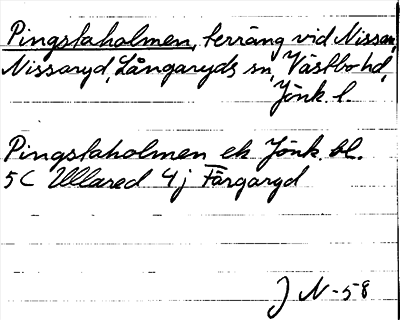 Pingstaholmen, terräng vid Nissan,
Nissaryd, Långaryds sn, Västbo hd,
Jönk. l.
Pingstaholmen ek. Jönk. bl.
5C Ullared 4j Färgaryd
J N-58